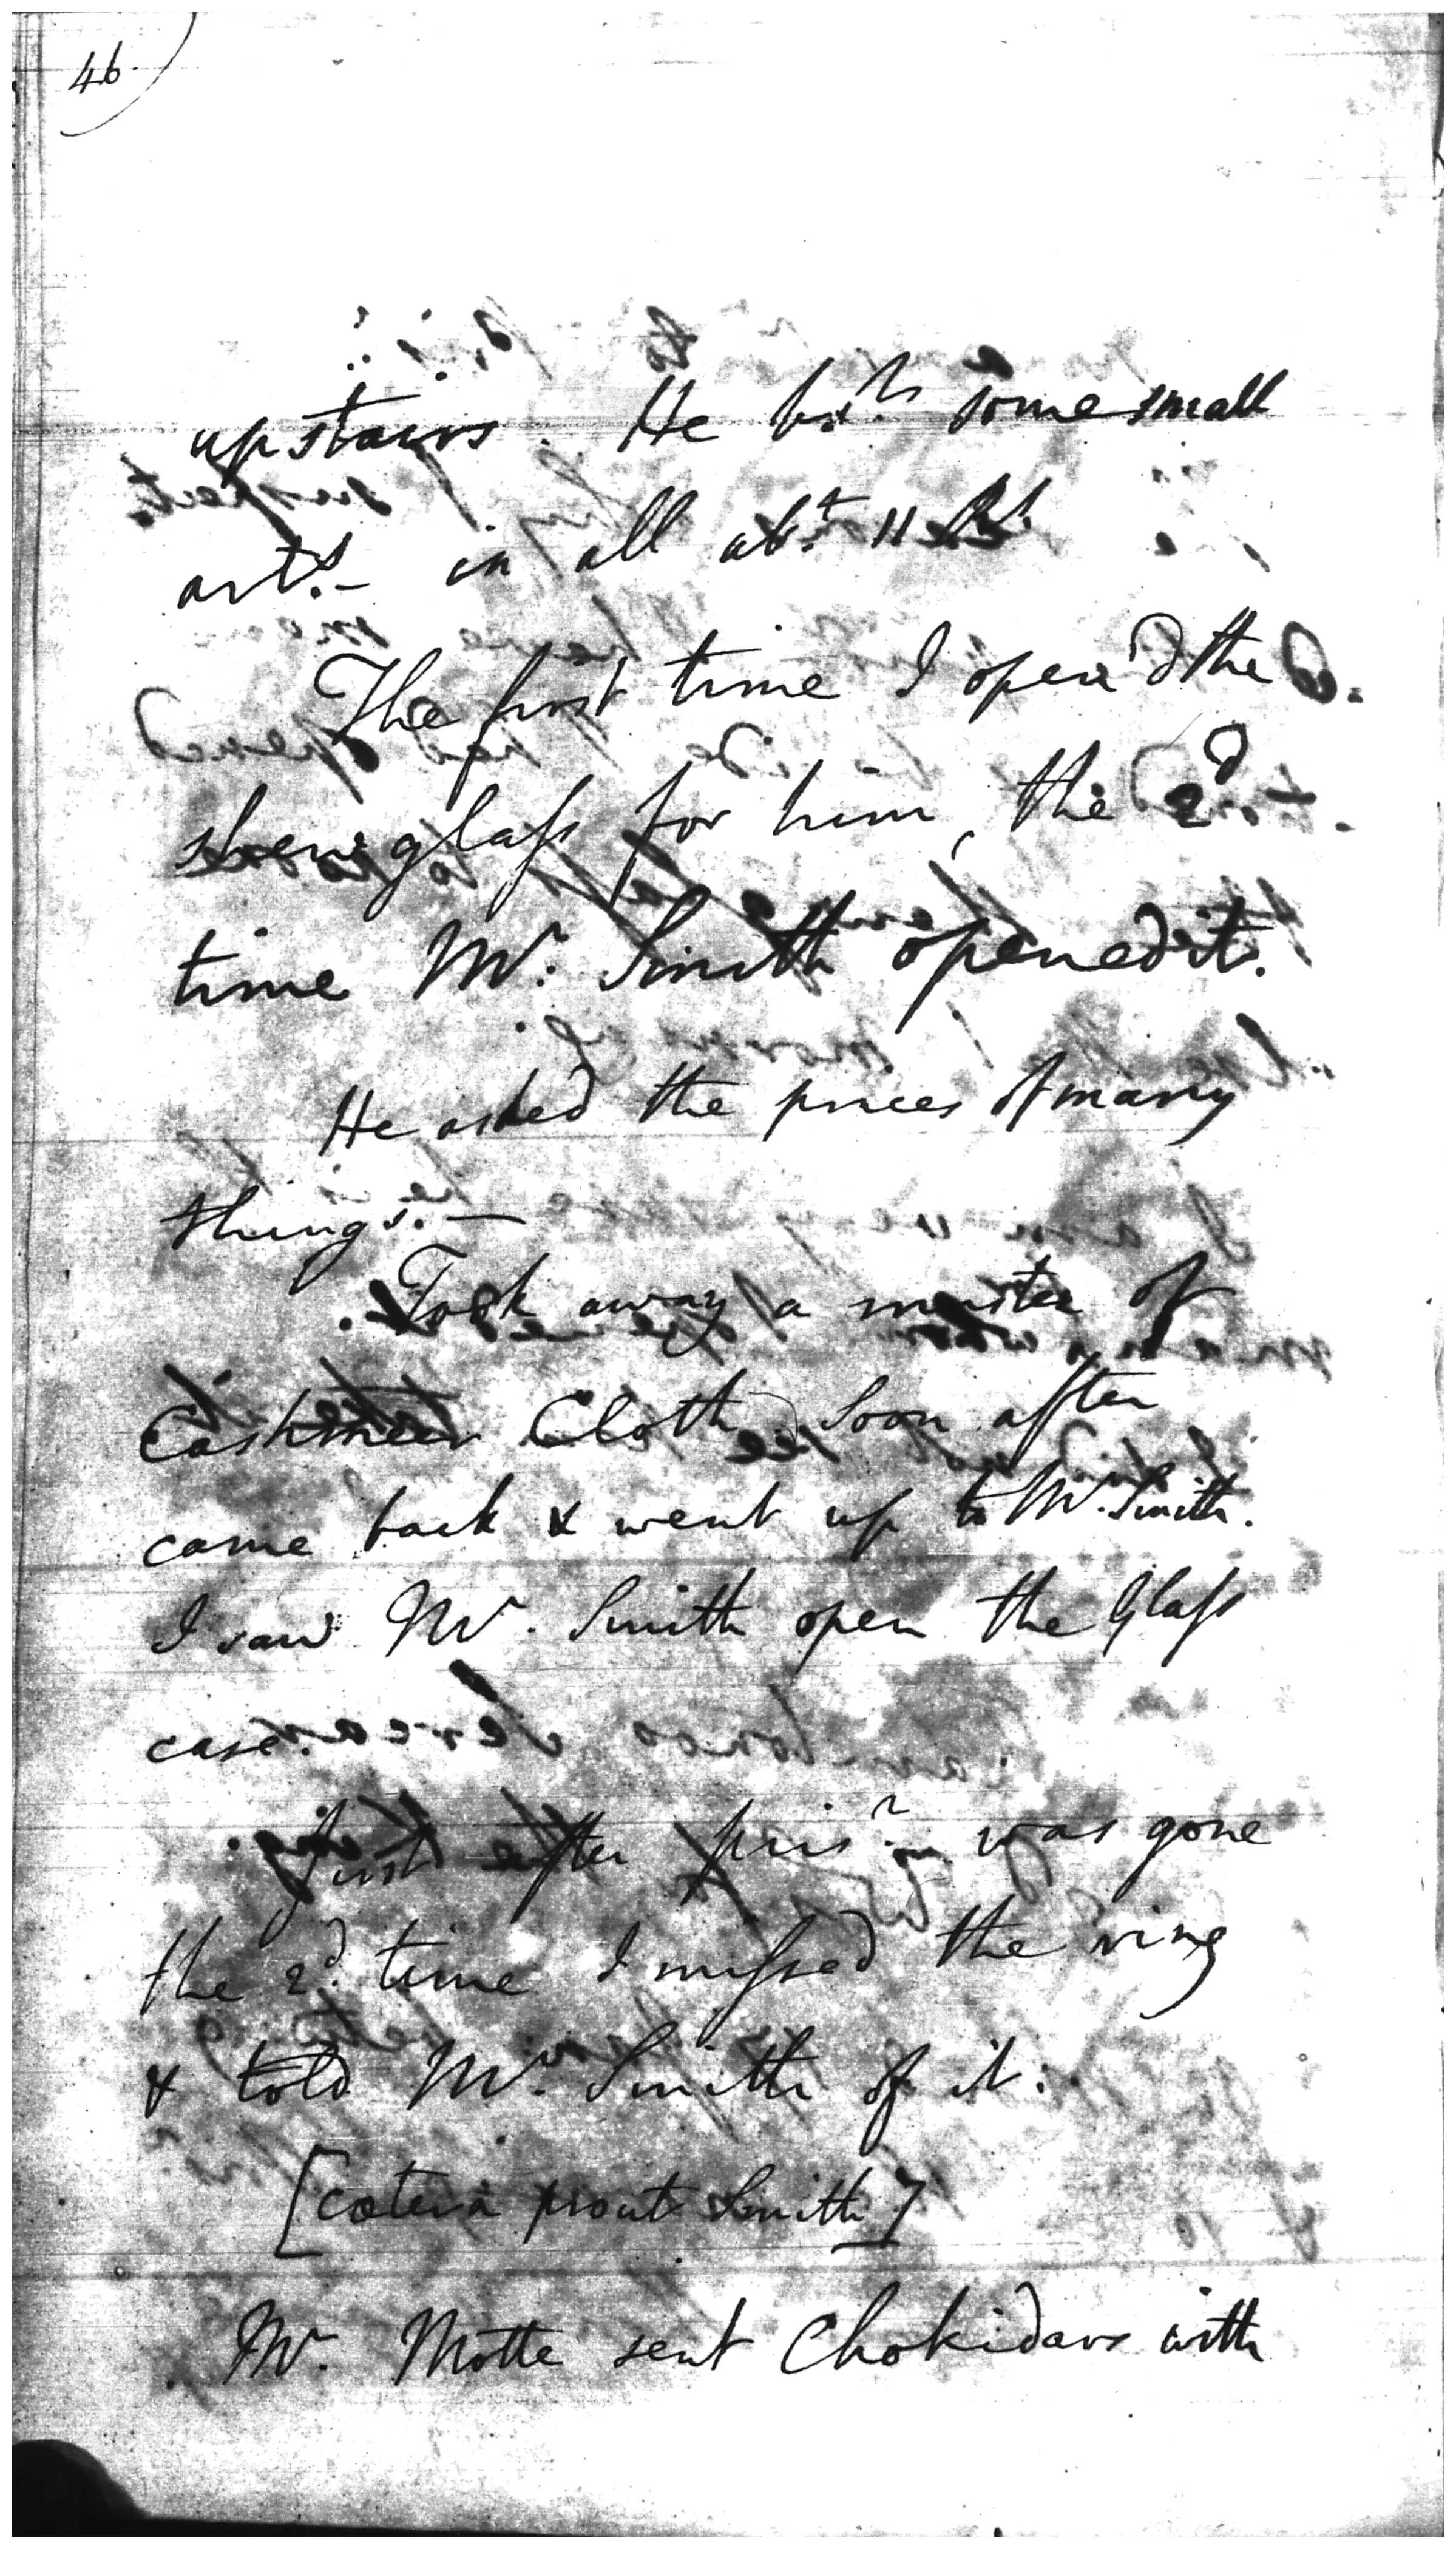 46
upstairs. He bo.t some small
art.s — in all ab.t 11 R.s
The first time I open'd the
shew glaſs for him, the 2d
time Mr. Smith opened it.
He asked the prices of many
things. —
Took away a muster of
Cashmeer Cloth, soon after
came back & went up to Mr. Smith.
I saw Mr. Smith open the Glaſs
case.
Just after pris.r was gone
the 2d. time I miſsed the ring
& told Mr. Smith of it.
[cætera prout Smith]
Mr. Motte sent Chokidars with